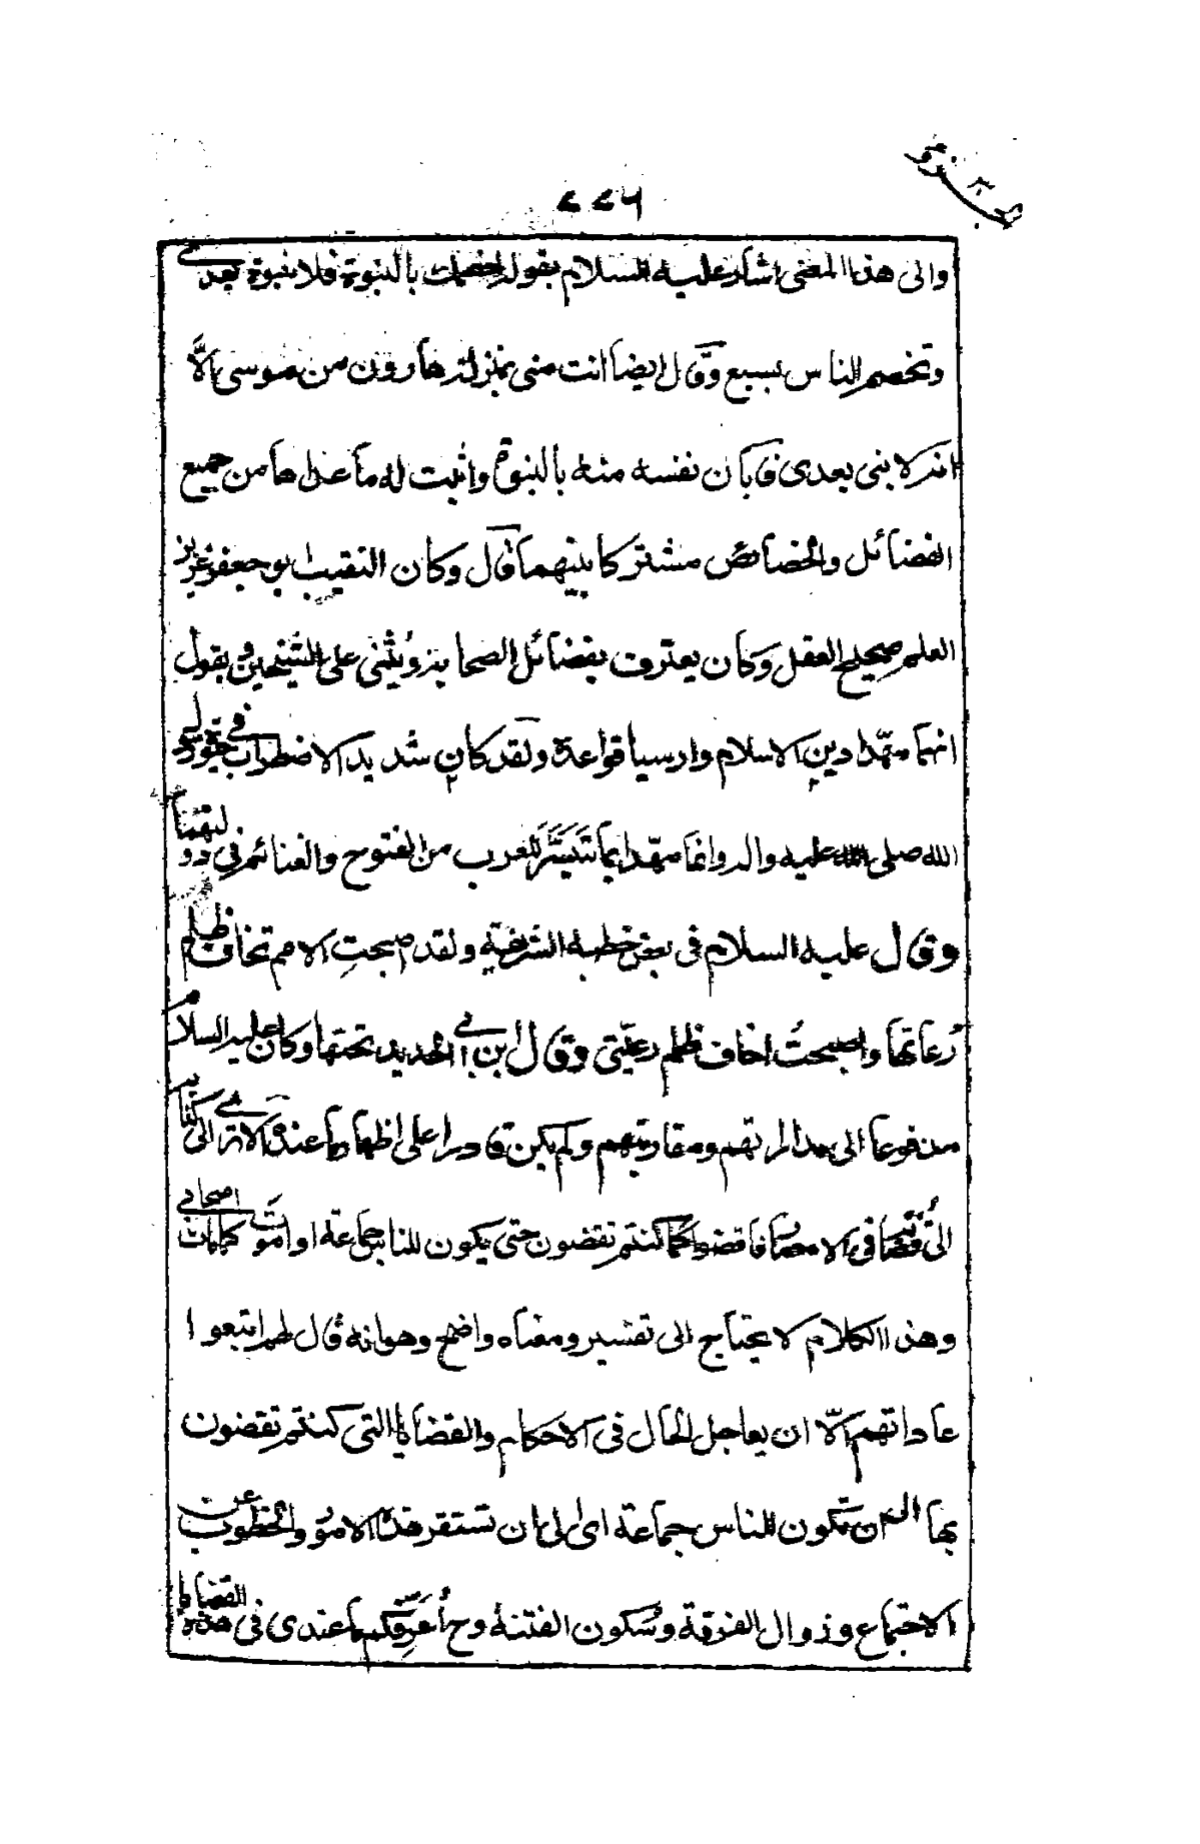 ٢٢٦
والى هذا المعنى اشار عليه السلام بقوله اخصمك بالنبوة فلا نبوة بعدي
وتخصم الناس بسبع وقال ايضا انت منى بمنزلة هارون من موسى الّا
انه لا نبى بعدى فابان نفسه منه بالنبوة واثبت له ما عداها من جميع
الفضائل والخصائص مشتركا بينهما قال وكان النقيب ابو جعفر غزير
العلم صحيح العقل وكان يعترف بفضائل الصحابة ويُثنى على الشيخين ويقول
انهما مهّدا دين الاسلام وارسيا قواعده ولقد كان شديد الاضطراب في حيوة رسول
الله صلى الله عليه واله وانما مهّداه بما تَيَسَّرَ للعرب من الفتوح والغنائم فى دولتهما
وقال عليه السلام فى بعض خطبه الشريفة ولقد اصبحتِ الامم تخاف ظلم
رُعاتها واصبحتُ اخاف ظلم رعيّتى وقال ابن ابي الحديد تحتها وكان عليه السلام
مدفوعا الى مداراتهم ومقاربتهم ولم يكن قادرا على اظهار ما عنده الا ترى الى كتابه
الى قُضاته فى الامصار فاقضوا كما كنتم تقضون حتى يكون للناس جماعة او اموت كما مات اصحابي
وهذا الكلام لا يحتاج الى تفسير ومعناه واضح وهو انه قال لهم اتبعوا
عاداتهم الّان بعاجل الحال فى الاحكام والقضايا التى كنتم تقضون
بها الى ان تكون للناس جماعة اى الى ان تستقر هذه الامور والخطوب عن
الاجتماع وزوال الفرقة وسُكون الفتنة وح أُعَرِّفُكم ما عندى فى هذه القضايا